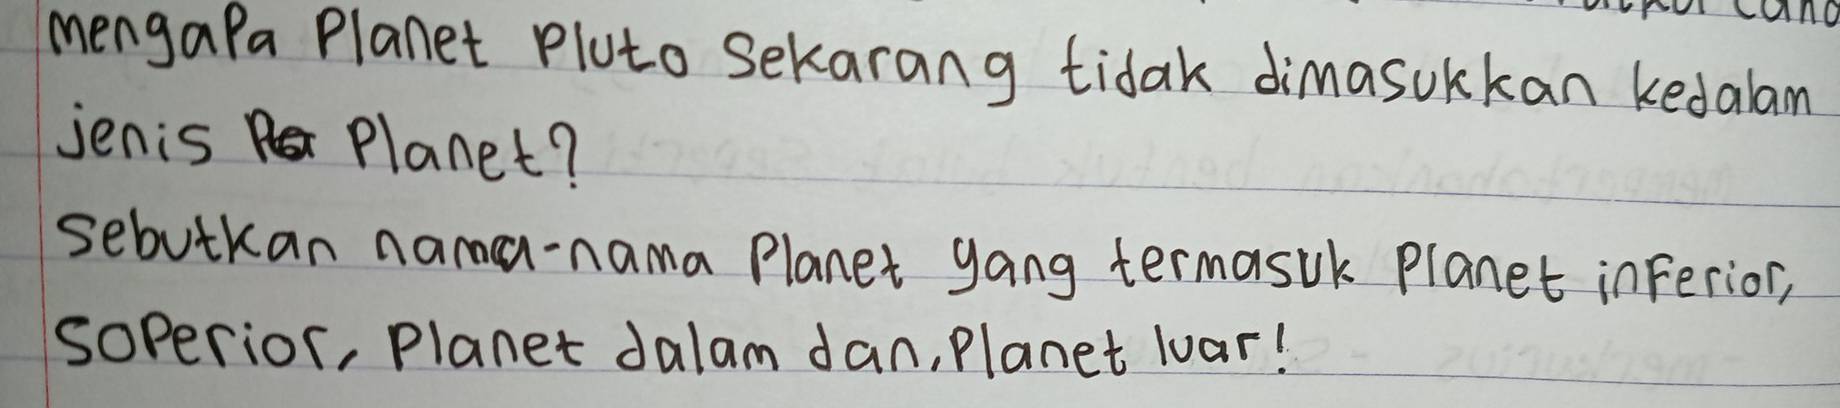 mengapa Planet Pluto Sekarang tidak dimasukkan kedalam
jenis Planet?
Sebutkan nama-nama Planet yang termasuk Planet inferior,
Soperior, Planet dalam dan, Planet luar!